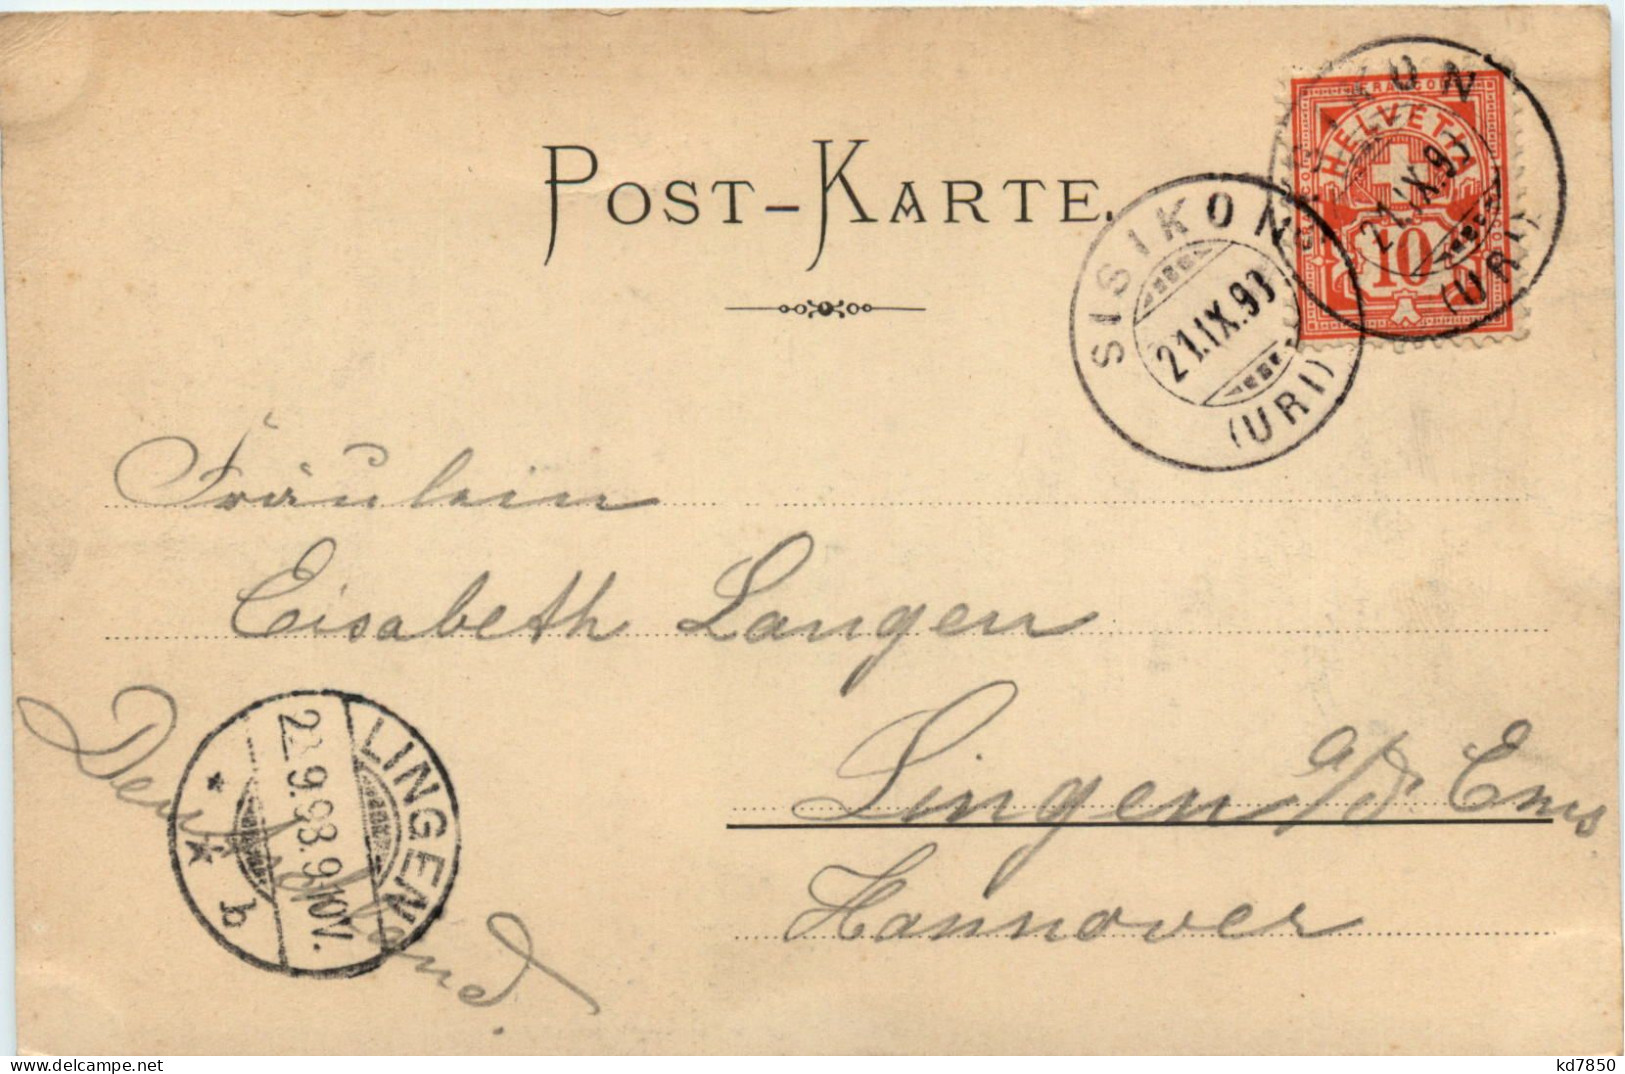 POST-KARTE.
FRANCO
HELVETIA
10
SISIKON
21.IX.93
(URI)
SISIKON
21.IX.93
(URI)
Fräulein
Elsabeth Langen
Lingen a/d Ems
Hannover
Deutschland.
LINGEN
9.93.9-10V.
* * b
delcampe.net
kd7850